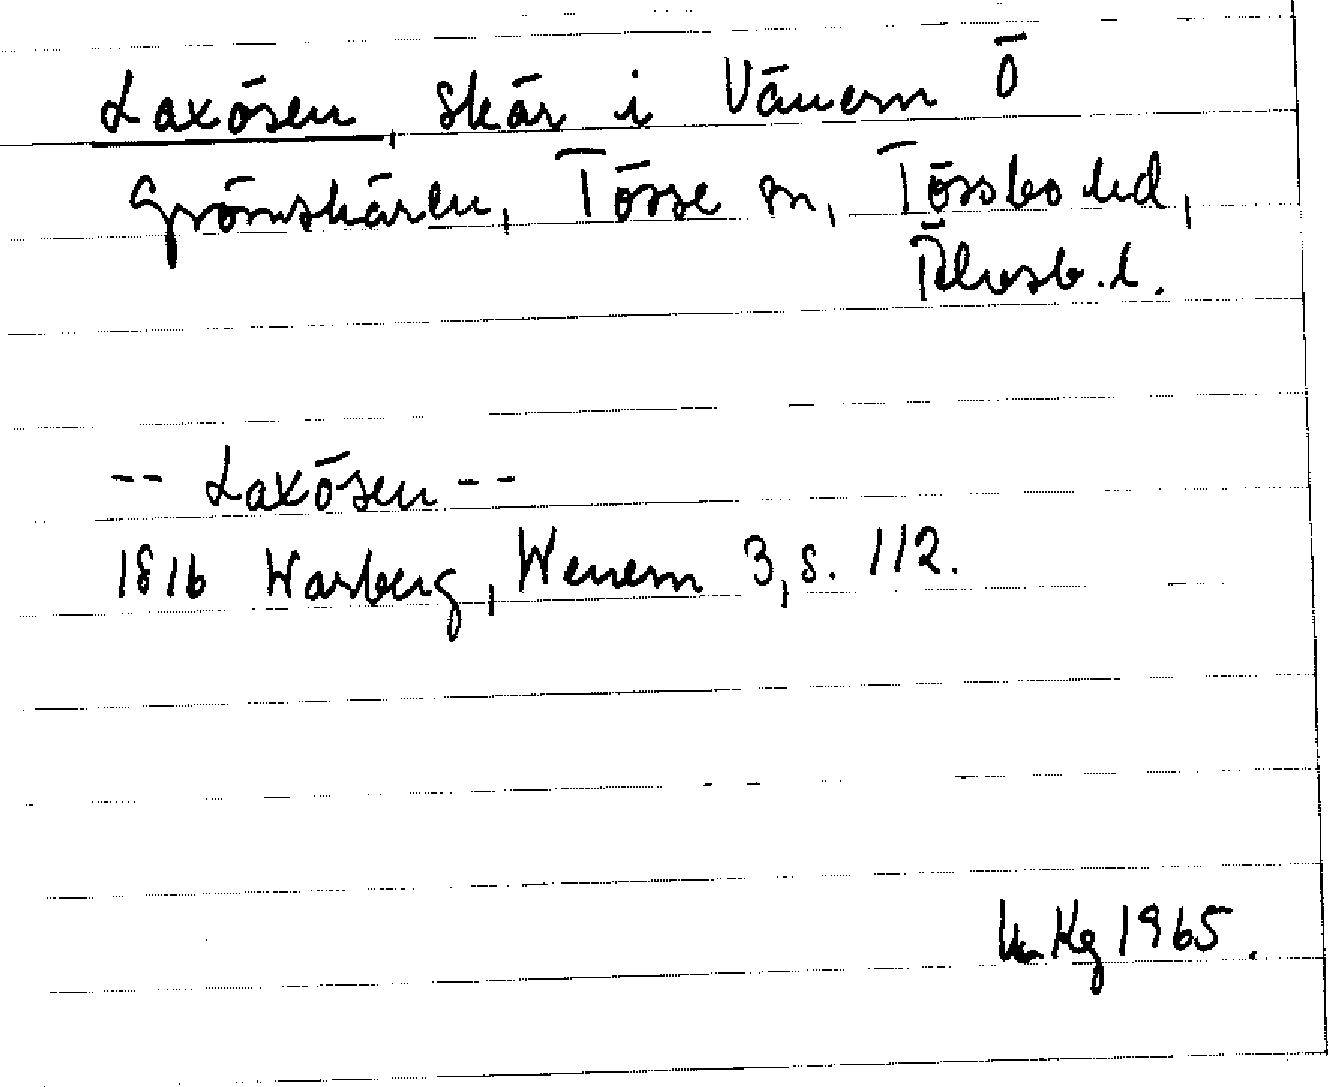 Laxösen, skär i Vänern Ö
Grönskären, Tösse sn, Tössbo hd,
Älvsb. l.
-- Laxösen --
1816 Warberg, Wenern 3, s. 112.
Kg 1965.